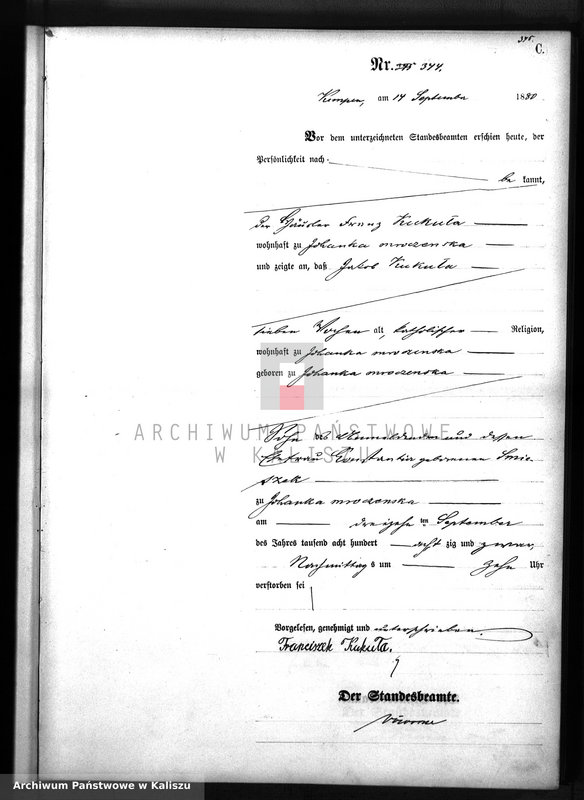 345.
C.
Nr. 344.
Kempen, am 14 September 1880
Vor dem unterzeichneten Standesbeamten erschien heute, der
Persönlichkeit nach
be kannt,
der Häusler Franz Kukuła
wohnhaft zu Johanka mroczenska
und zeigte an, daß Jakob Kukuła
sieben Wochen alt, katholischer Religion,
wohnhaft zu Johanka mroczenska
geboren zu Johanka mroczenska
ARCHIWUM PAŃSTWOWE
W KALISZU
Sohn des Anmeldenden und dessen
Ehefrau Konstantia geborenen Smie-
szek
zu Johanka mroczenska
am dreizehn ten September
des Jahres tausend acht hundert acht zig und zwar,
Nachmittag s um zehn Uhr
verstorben sei
Vorgelesen, genehmigt und unterschrieben.
Franciszek Kukuła.
Der Standesbeamte.
Archiwum Państwowe w Kaliszu